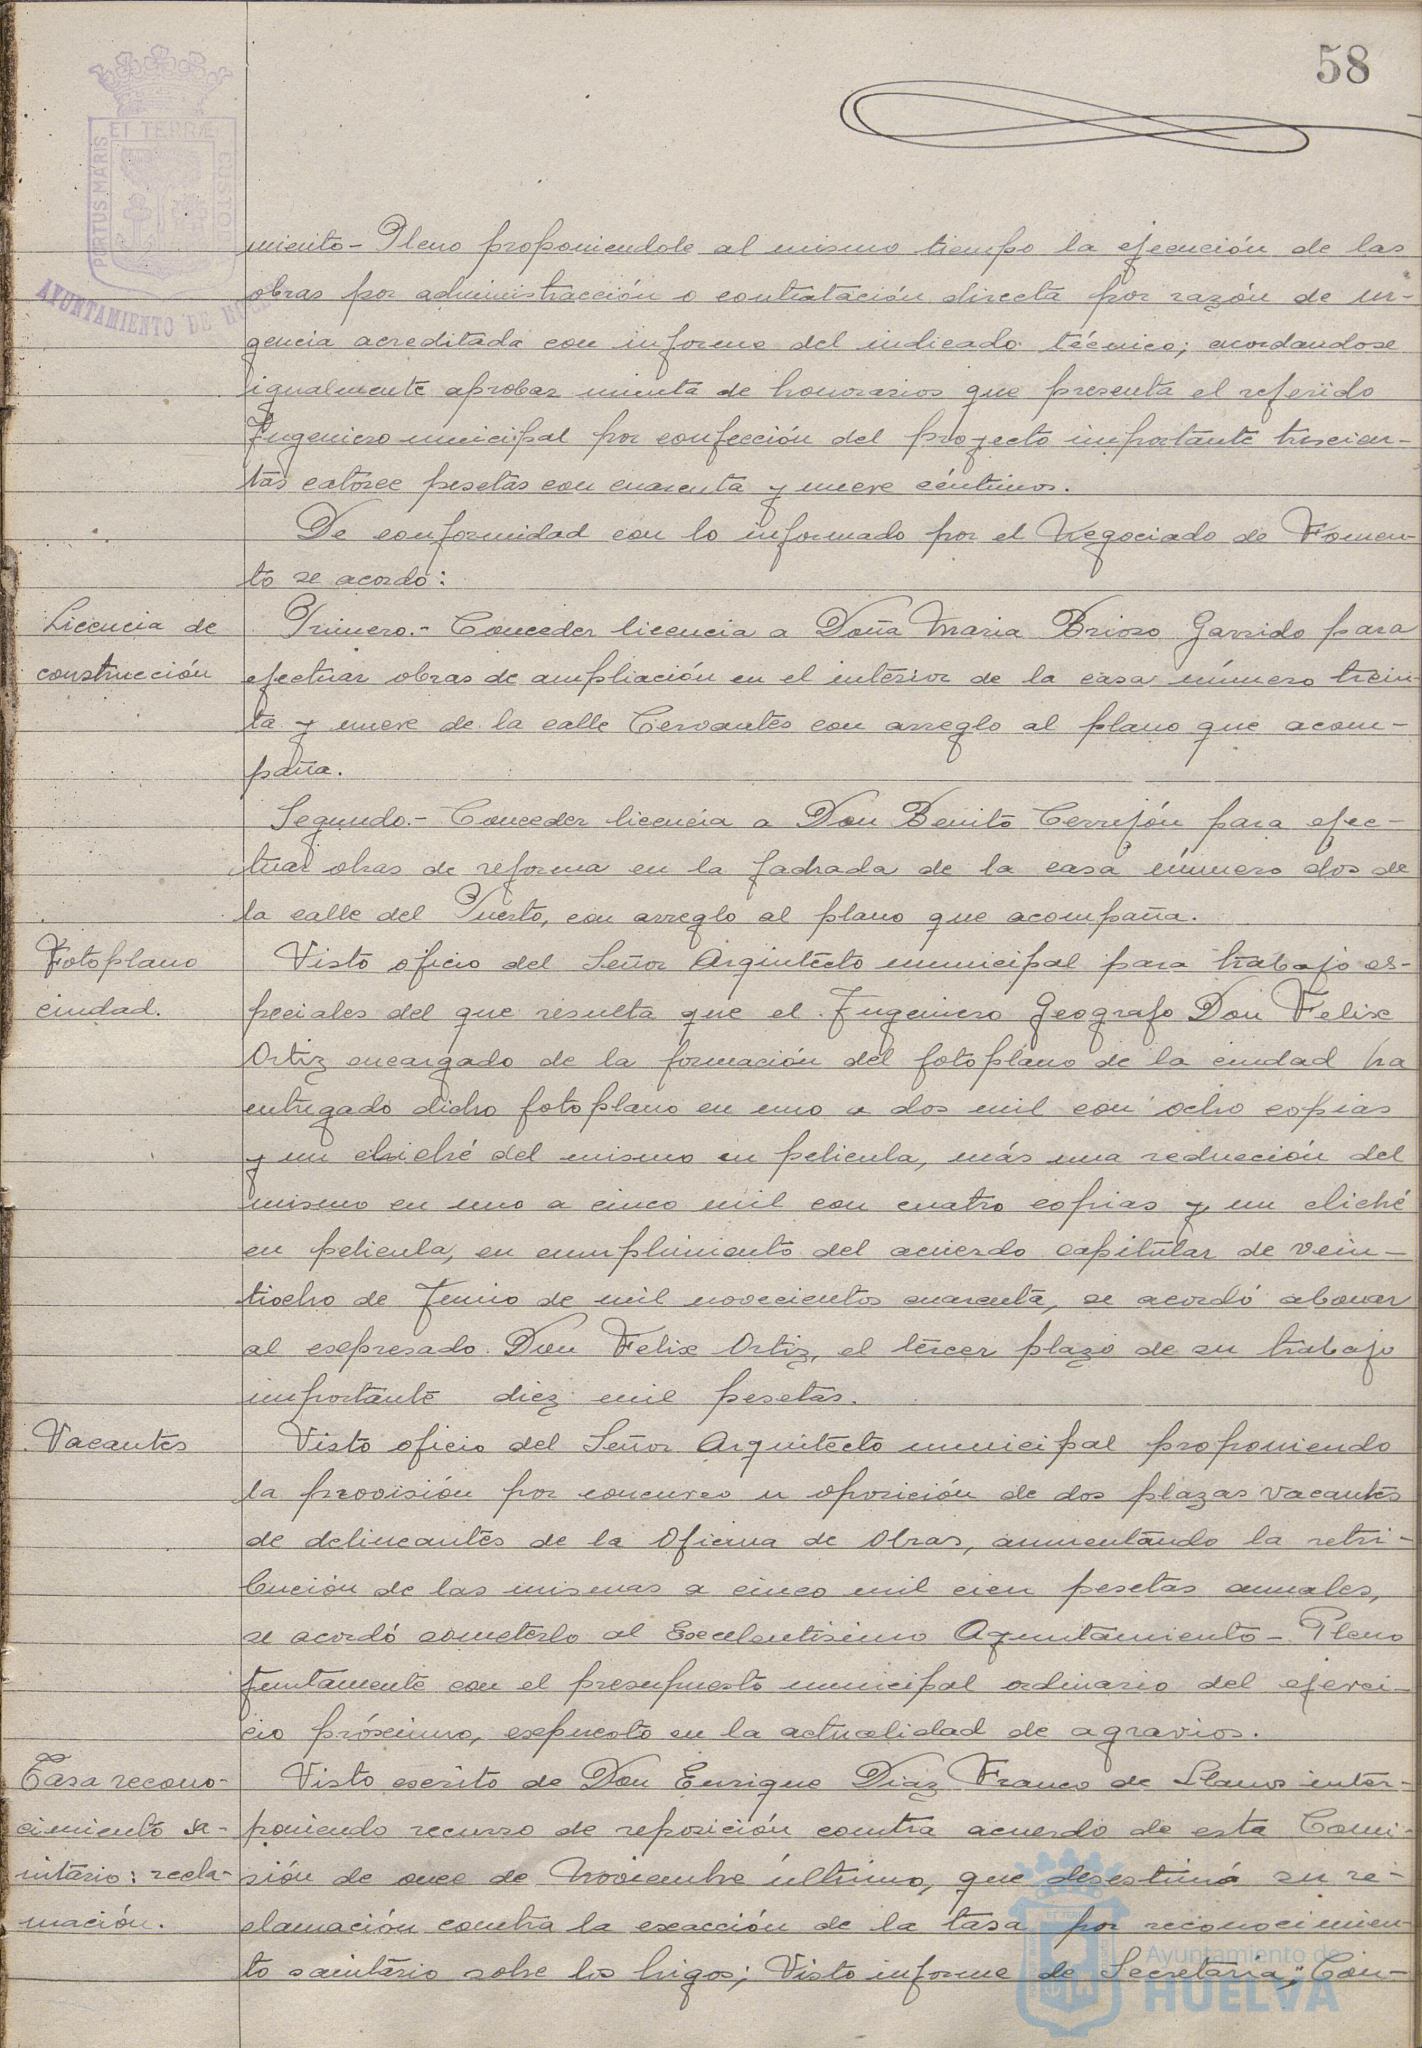 58
PORTUS MARIS ET TERRÆ CUSTODI
AYUNTAMIENTO DE HUELVA
miento-Pleno proponiendole al mismo tiempo la ejecución de las
obras por administracción o contratación directa por razón de ur-
gencia acreditada con informe del indicado técnico; acordandose
igualmente aprobar minuta de honorarios que presenta el referido
Ingeniero municipal por confección del proyecto importante trescien-
tas catorce pesetas con cuarenta y nueve céntimos.
De conformidad con lo informado por el Negociado de Fomen-
to se acordó:
Licencia de
construcción
Primero.- Conceder licencia a Doña Maria Brioso Garrido para
efectuar obras de ampliación en el interior de la casa número trein-
ta y nueve de la calle Cervantes con arreglo al plano que acom-
paña.
Segundo.- Conceder licencia a Don Benito Cerrejón para efec-
tuar obras de reforma en la fachada de la casa número dos de
la calle del Puerto, con arreglo al plano que acompaña.
Fotoplano
ciudad.
Visto oficio del Señor Arquitecto municipal para trabajo es-
peciales del que resulta que el Ingeniero Geografo Don Felix
Ortiz encargado de la formación del fotoplano de la ciudad ha
entregado dicho fotoplano en uno a dos mil con ocho copias
y un cliché del mismo en pelicula, más una reducción del
mismo en uno a cinco mil con cuatro copias y un cliché
en pelicula, en cumplimiento del acuerdo capitular de vein-
tiocho de Junio de mil novecientos cuarenta, se acordó abonar
al expresado Don Felix Ortiz, el tercer plazo de su trabajo
importante diez mil pesetas.
Vacantes
Visto oficio del Señor Arquitecto municipal proponiendo
la provisión por concurso u oposición de dos plazas vacantes
de delineantes de la Oficina de Obras, aumentando la retri-
bución de las mismas a cinco mil cien pesetas anuales,
se acordó someterlo al Excelentisimo Ayuntamiento-Pleno
juntamente con el presupuesto municipal ordinario del ejerci-
cio próximo, expuesto en la actualidad de agravios.
Tasa recono-
cimiento sa-
nitario: recla-
mación.
Visto escrito de Don Enrique Diaz Franco de Llanos inter-
poniendo recurso de reposición contra acuerdo de esta Comi-
sión de once de Noviembre último, que desestimó su re-
clamación contra la exacción de la tasa por reconocimien-
to sanitario sobre los higos; Visto informe de Secretaria, "Con-
Ayuntamiento de
HUELVA